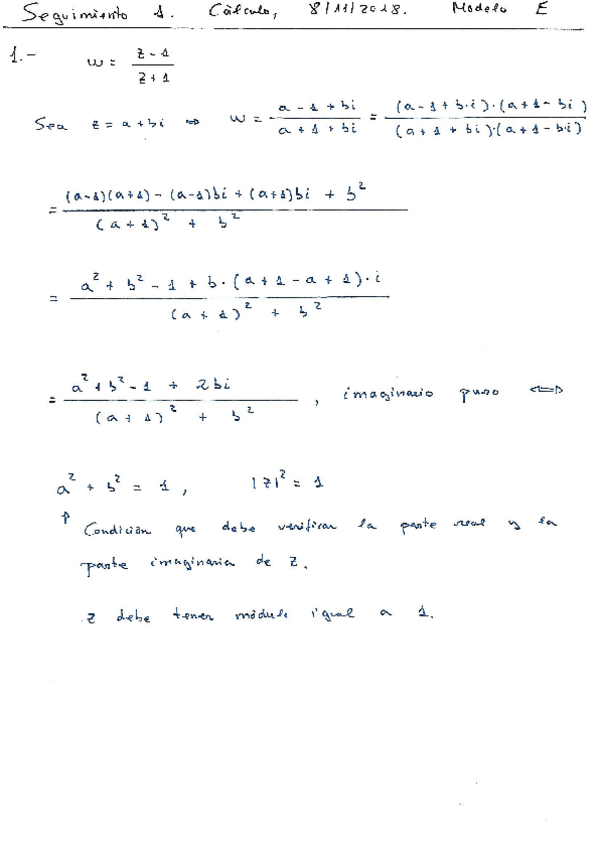 Seguimiento 1. Cálculo, 8/11/2018. Modelo E
1.- w = (z - 1)/(z + 1)
Sea z = a + bi ⇒ w = (a - 1 + bi)/(a + 1 + bi) = ((a - 1 + b·i)·(a + 1 - bi))/((a + 1 + bi)·(a + 1 - b·i))
= ((a-1)(a+1) - (a-1)bi + (a+1)bi + b²)/((a+1)² + b²)
= (a² + b² - 1 + b·(a + 1 - a + 1)·i)/((a+1)² + b²)
= (a² + b² - 1 + 2bi)/((a+1)² + b²) , imaginario puro ⟺
a² + b² = 1, |z|² = 1
↑ Condición que debe verificar la parte real y la
parte imaginaria de z.
z debe tener módulo igual a 1.